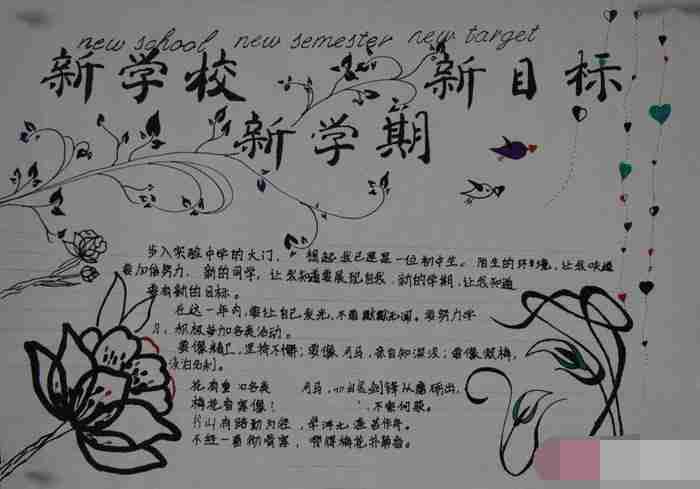 new school new semester new target
新学校 新目标
新学期
步入实验中学的大门, 想起我已经是一位初中生。陌生的环境,让我知道
要加倍努力,新的同学,让我知道要展现自我,新的学期,让我知道
要有新的目标。
在这一年内,要让自己发光,不要默默无闻。要努力学
习,积极参加各类活动。
要像,坚持不懈;要像司马,要像腊梅,
花有重 司马, 剑锋从磨砺出,
梅花香 不要何歌。
书山有路勤为径,学海无涯苦作舟。
不经一番彻骨寒,哪得梅花扑鼻香。